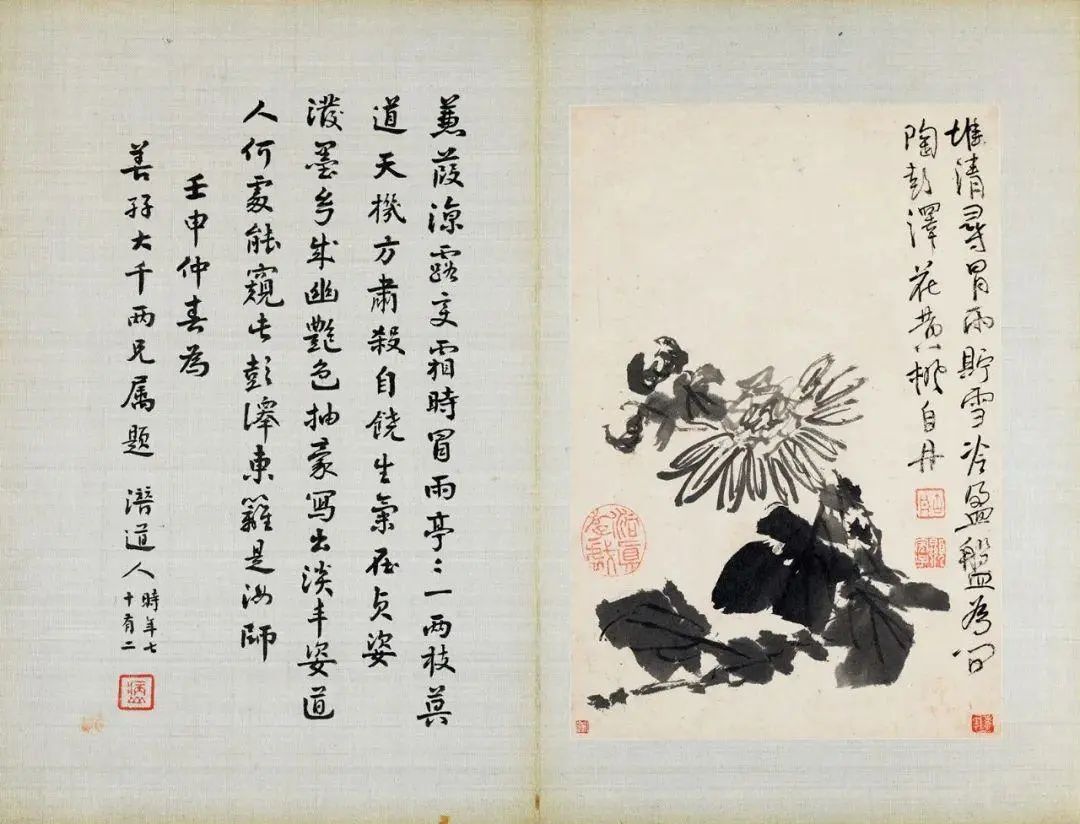 清尋冒雨貯雪冷盈盤為問
陶彭澤花黄自丹
蒹葭涼露变霜時冒雨亭〻一兩枝莫
道天機方肅殺自饒生氣在貞姿
潑墨成幽艷色抽豪寫出淡丰姿道
人何處能窺此彭澤東籬是汝師
壬申仲春為
善孖大千兩兄属題 潛道人 時年七
十有二
病山